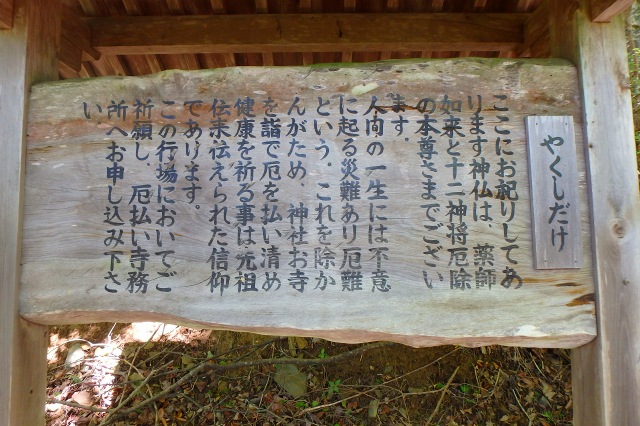 やくしだけ
ここにお祀りしてあ
ります神仏は、薬師
如来と十二神将厄除
の本尊さまでござい
ます。
人間の一生には不意
に起る災難あり厄難
という。これを除か
んがため、神社お寺
を詣で厄を払い清め
健康を祈る事は元祖
伝来伝えられた信仰
であります。
この行場においてご
祈願し、厄払い寺務
所へお申し込み下さ
い